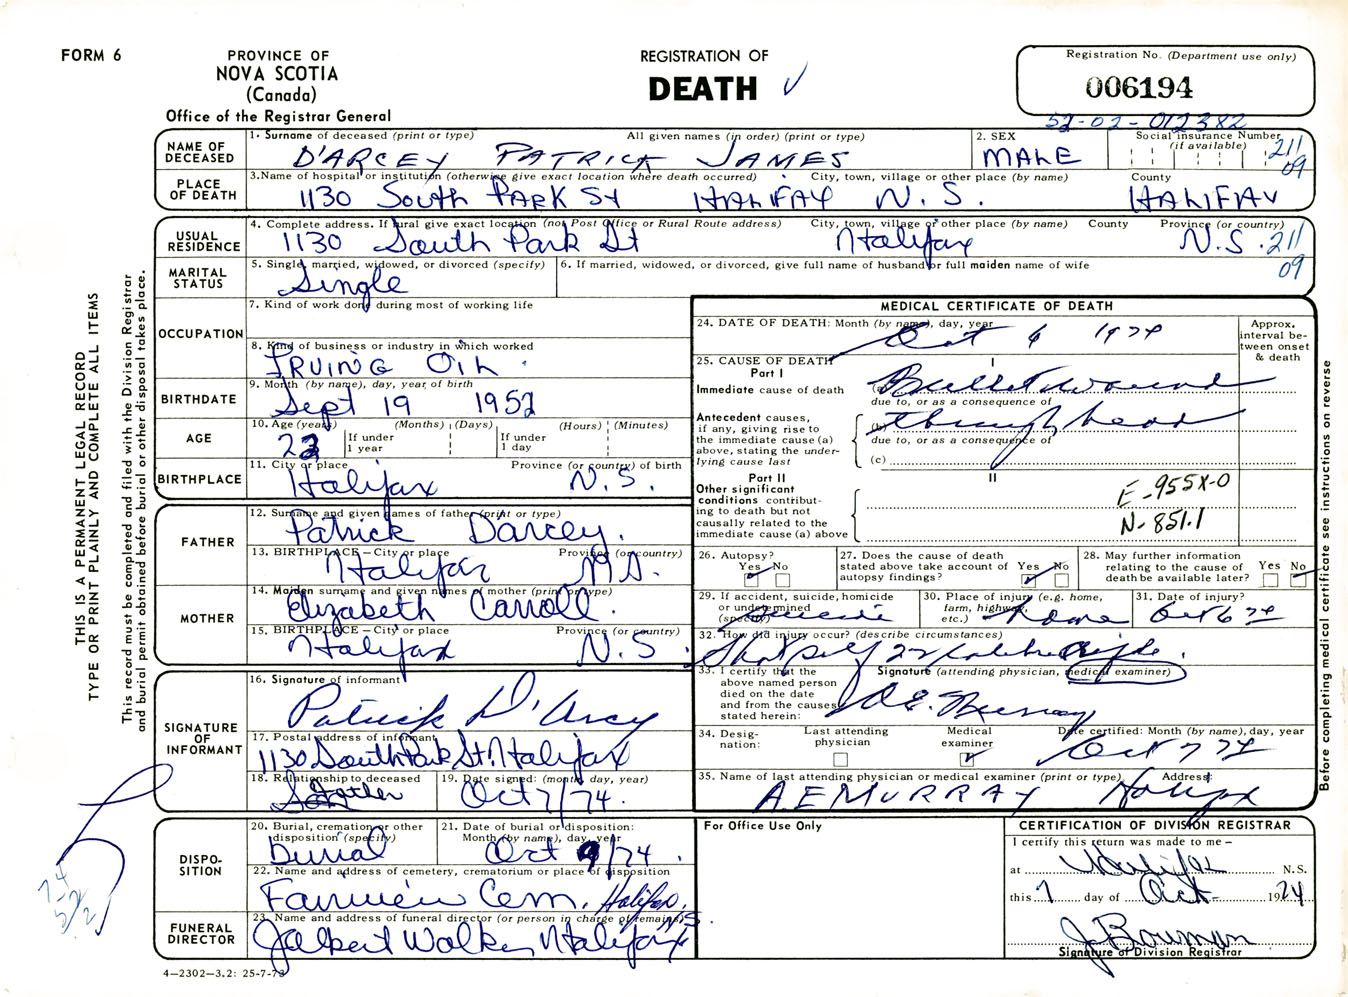 FORM 6
PROVINCE OF
NOVA SCOTIA
(Canada)
Office of the Registrar General
REGISTRATION OF
DEATH ✓
Registration No. (Department use only)
006194
52-02-012382
NAME OF DECEASED
1. Surname of deceased (print or type) All given names (in order) (print or type)
D'ARCEY PATRICK JAMES
2. SEX
MALE
Social insurance Number (if available)
211
09
PLACE OF DEATH
3. Name of hospital or institution (otherwise give exact location where death occurred) City, town, village or other place (by name) County
1130 South PARK St HALIFAX N.S. HALIFAX
USUAL RESIDENCE
4. Complete address. If rural give exact location (not Post Office or Rural Route address) City, town, village or other place (by name) County Province (or country)
1130 South Park St Halifax N.S. 211
09
MARITAL STATUS
5. Single, married, widowed, or divorced (specify)
Single
6. If married, widowed, or divorced, give full name of husband or full maiden name of wife
OCCUPATION
7. Kind of work done during most of working life
8. Kind of business or industry in which worked
IRVING OIL
BIRTHDATE
9. Month (by name), day, year of birth
Sept 19 1952
AGE
10. Age (years) (Months) (Days) (Hours) (Minutes)
If under 1 year
If under 1 day
BIRTHPLACE
11. City or place Province (or country) of birth
Halifax N.S.
FATHER
12. Surname and given names of father (print or type)
Patrick Darcey.
13. BIRTHPLACE – City or place Province (or country)
Halifax N.S.
MOTHER
14. Maiden surname and given names of mother (print or type)
Elizabeth Carroll.
15. BIRTHPLACE – City or place Province (or country)
Halifax N.S.
SIGNATURE OF INFORMANT
16. Signature of informant
Patrick D'Arcy
17. Postal address of informant
1130 South Park St. Halifax
18. Relationship to deceased
Father
19. Date signed: (month, day, year)
Oct 7/74.
DISPOSITION
20. Burial, cremation or other disposition (specify)
Burial
21. Date of burial or disposition: Month (by name), day, year
Oct 9/74.
22. Name and address of cemetery, crematorium or place of disposition
Fairview Cem. Halifax, N.S.
FUNERAL DIRECTOR
23. Name and address of funeral director (or person in charge of remains)
Walker Halifax
4—2302—3.2: 25-7-73
MEDICAL CERTIFICATE OF DEATH
24. DATE OF DEATH: Month (by name), day, year
Oct 6 1974
Approx. interval between onset & death
25. CAUSE OF DEATH
Part I
I
Immediate cause of death
(a) Bullet wound
due to, or as a consequence of
Antecedent causes, if any, giving rise to the immediate cause (a) above, stating the underlying cause last
(b) through head
due to, or as a consequence of
(c)
Part II
II
Other significant conditions contributing to death but not causally related to the immediate cause (a) above
E-955X-0
N-851.1
26. Autopsy?
Yes No
27. Does the cause of death stated above take account of autopsy findings?
Yes No
28. May further information relating to the cause of death be available later?
Yes No
29. If accident, suicide, homicide or undetermined (specify)
Suicide
30. Place of injury (e.g. home, farm, highway, etc.)
Home
31. Date of injury?
Oct 6 74
32. How did injury occur? (describe circumstances)
Shot self 22 calibre rifle.
33. I certify that the above named person died on the date and from the causes stated herein:
Signature (attending physician, medical examiner)
A.E. Murray
34. Designation:
Last attending physician
Medical examiner
Date certified: Month (by name), day, year
Oct 7 74
35. Name of last attending physician or medical examiner (print or type) Address:
A.E MURRAY Halifax
For Office Use Only
CERTIFICATION OF DIVISION REGISTRAR
I certify this return was made to me –
at Halifax N.S.
this 7 day of Oct. 1974
J Bowman
Signature of Division Registrar
THIS IS A PERMANENT LEGAL RECORD
TYPE OR PRINT PLAINLY AND COMPLETE ALL ITEMS
This record must be completed and filed with the Division Registrar
and burial permit obtained before burial or other disposal takes place.
Before completing medical certificate see instructions on reverse